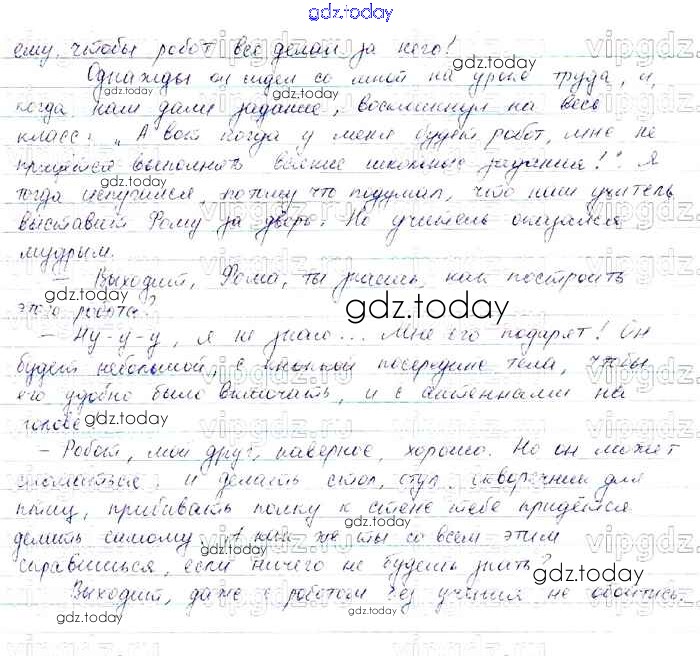 gdz.today
ему, чтобы робот все делал за него!
Однажды он сидел со мной на уроке труда, и,
когда нам дали задание, воскликнул на весь
класс: „А вот когда у меня будет робот, мне не
придётся выполнять всякие школьные задания!" Я
тогда испугался, потому что подумал, что наш учитель
выставит Рому за дверь. Но учитель оказался
мудрым.
– Выходит, Рома, ты знаешь, как построить
этого робота?
– Ну-у-у, я не знаю... Мне его подарят! Он
будет небольшой, с кнопкой посередине тела, чтобы
его удобно было включать, и с антеннами на
голове.
– Робот, мой друг, наверное, хорошо. Но он может
сломаться, и делать стол, стул, скворечник для
птиц, прибивать полку к стене тебе придётся
делать самому. А как же ты со всем этим
справишься, если ничего не будешь знать?
Выходит, даже с роботом без учения не обойтись.